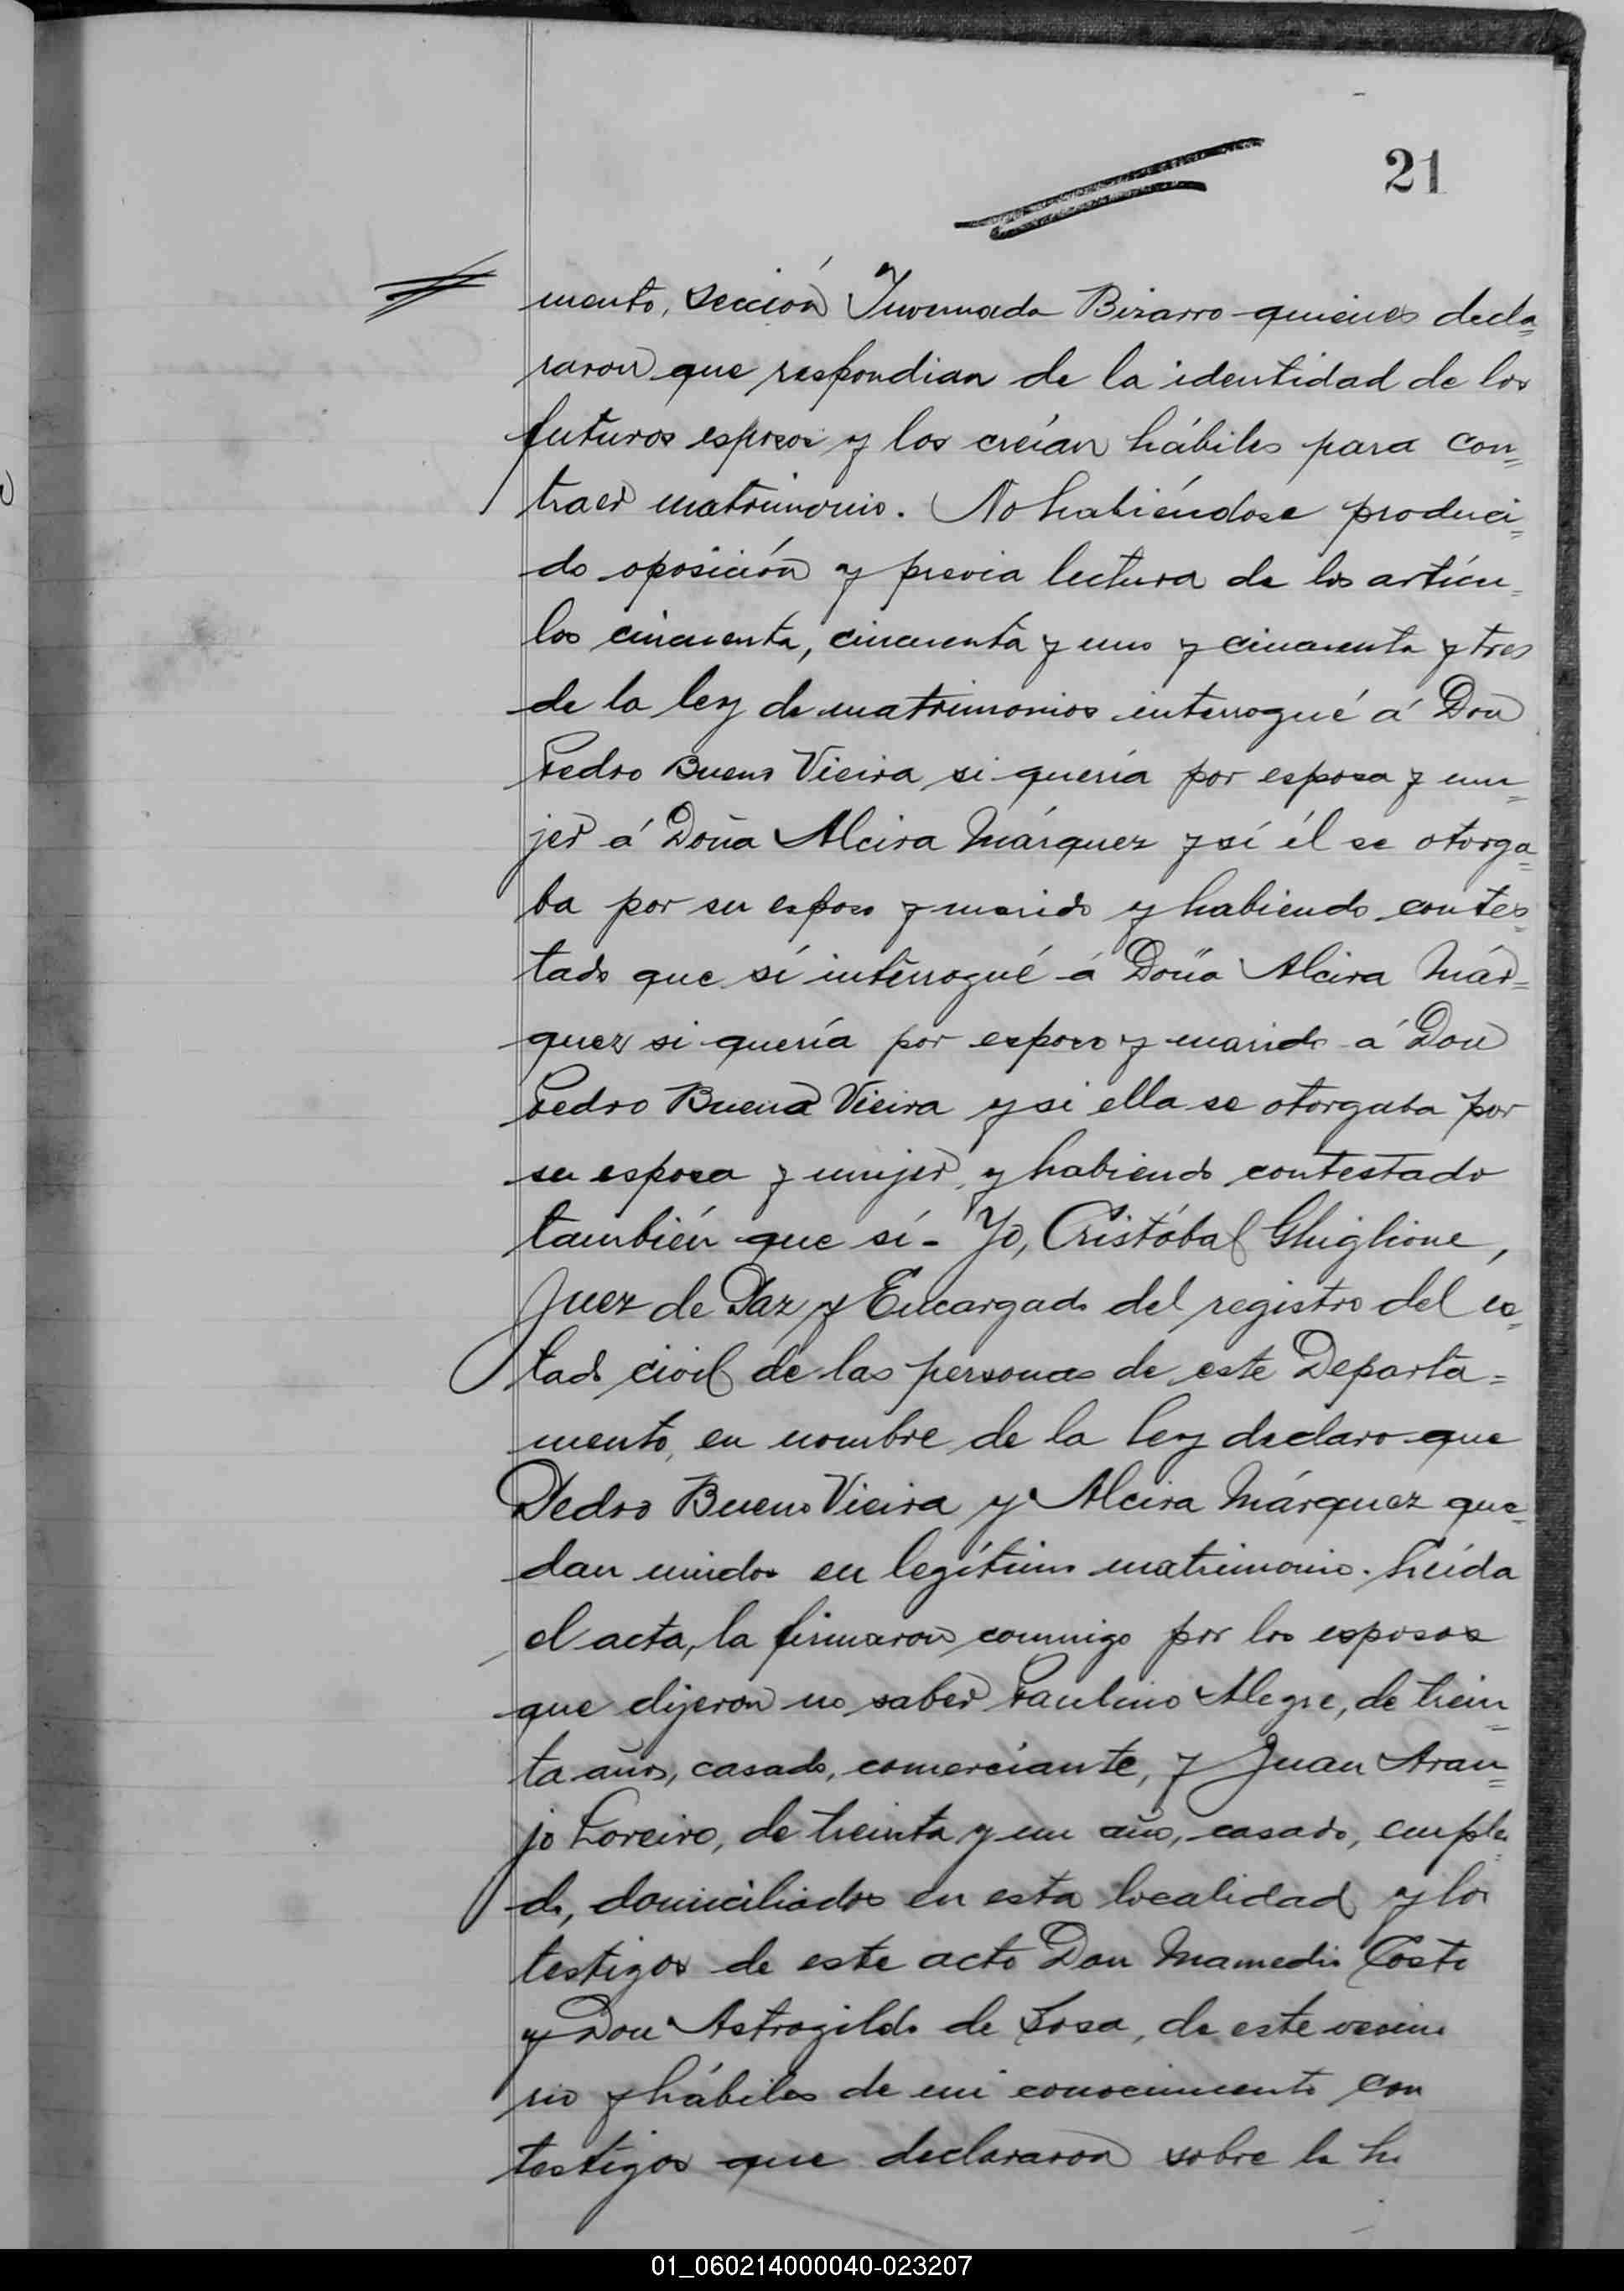 21
mento, sección Invernada Bizarro quienes decla=
raron que respondian de la identidad de los
futuros esposos y los creían hábiles para con=
traer matrimonio. No habiéndose produci=
do oposición y previa lectura de los artícu=
los cincuenta, cincuenta y uno y cincuenta y tres
de la ley de matrimonios interrogué á Don
Pedro Bueno Vieira si quería por esposa y mu=
jer á Doña Alcira Márquez y sí él se otorga=
ba por su esposo y marido y habiendo contes=
tado que sí interrogué á Doña Alcira Már=
quez si quería por esposo y marido á Don
Pedro Bueno Vieira y si ella se otorgaba por
su esposa y mujer, y habiendo contestado
también que sí - Yo, Cristóbal Ghiglione,
Juez de Paz y Encargado del registro del es=
tado civil de las personas de este Departa=
mento, en nombre de la ley declaro que
Pedro Bueno Vieira y Alcira Márquez que=
dan unidos en legítimo matrimonio. Leída
el acta, la firmaron conmigo por los esposos
que dijeron no saber Paulino Alegre, de trein=
ta años, casado, comerciante, y Juan Arau=
jo Loreiro, de treinta y un año, casado, emplea=
do, domiciliados en esta localidad y los
testigos de este acto Don Mamedio Costa
y Don Astrogildo de Sosa, de este vecin
rio y hábiles de mi conocimiento con
testigos que declararon sobre la h
01_060214000040-023207